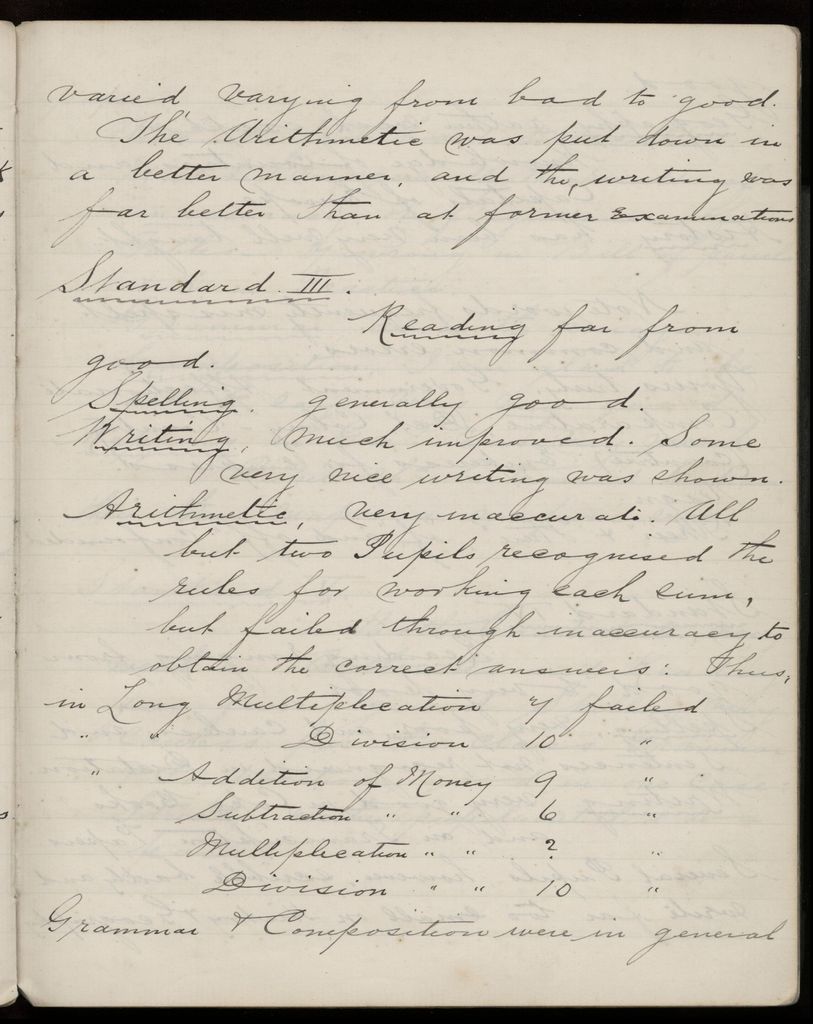 varied varying from bad to good.
The Arithmetic was put down in
a better manner, and the, writing was
far better than at former Examinations
Standard III.
Reading far from
good.
Spelling. generally good.
Writing, much improved. Some
very nice writing was shown.
Arithmetic, very inaccurate. All
but two Pupils recognised the
rules for working each sum,
but failed through inaccuracy to
obtain the correct answers: Thus,
in Long Multiplication 7 failed
" " Division 10 "
" Addition of Money 9 "
Subtraction " " 6 "
Multiplication " " ? "
Division " " 10 "
Grammar & Composition were in general